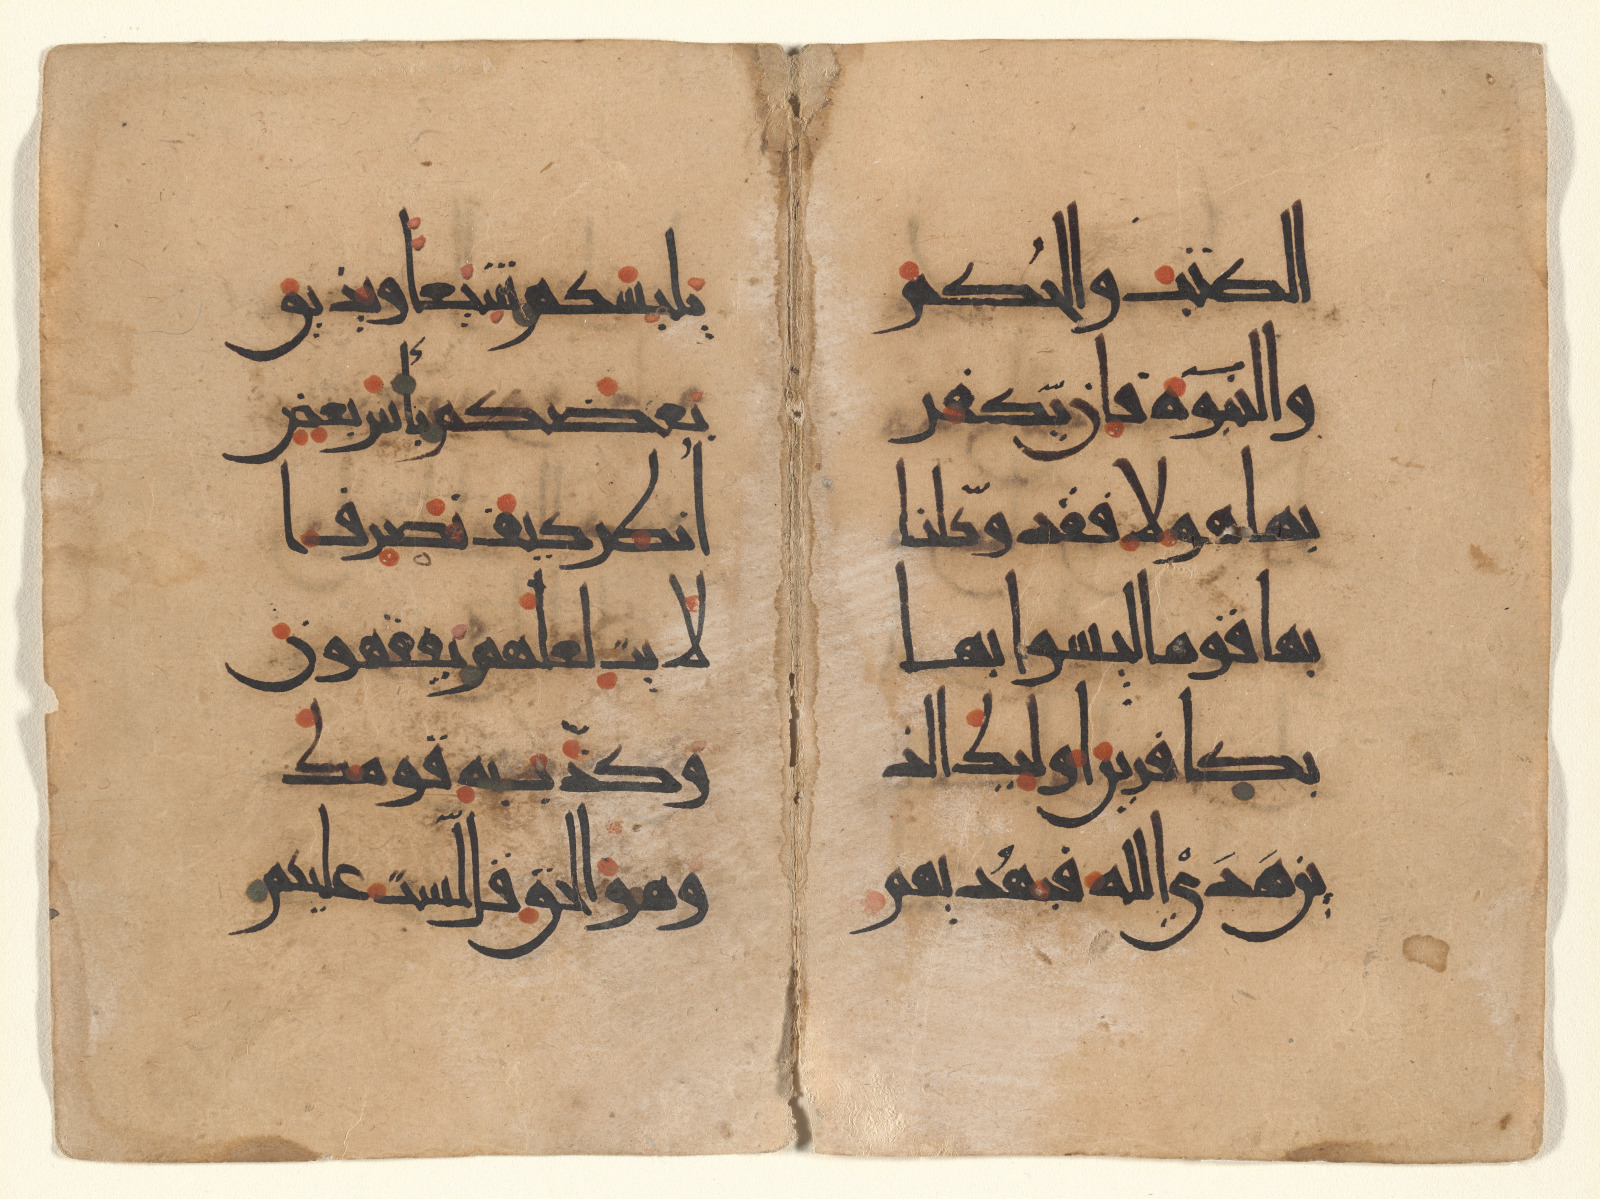 الكتب والحكم
والنبوة فان يكفر
بها هولا فقد وكلنا
بها قوما ليسوا بها
بكافرين اوليك الذ
ين هدي الله فبهديهم
يلبسكم شيعا ويذيق
بعضكم بأس بعض
انظر كيف نصرف ا
لايت لعلهم يفقهون
وكذب به قومك
وهو الحق قل لست عليكم